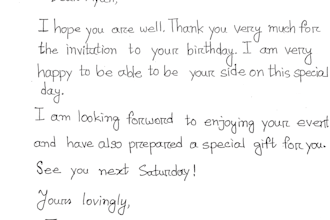 I hope you are well. Thank you very much for
the invitation to your birthday. I am very
happy to be able to be your side on this special
day.
I am looking forword to enjoying your event
and have also prepared a special gift for you.
See you next Saturday!
Yours lovingly,